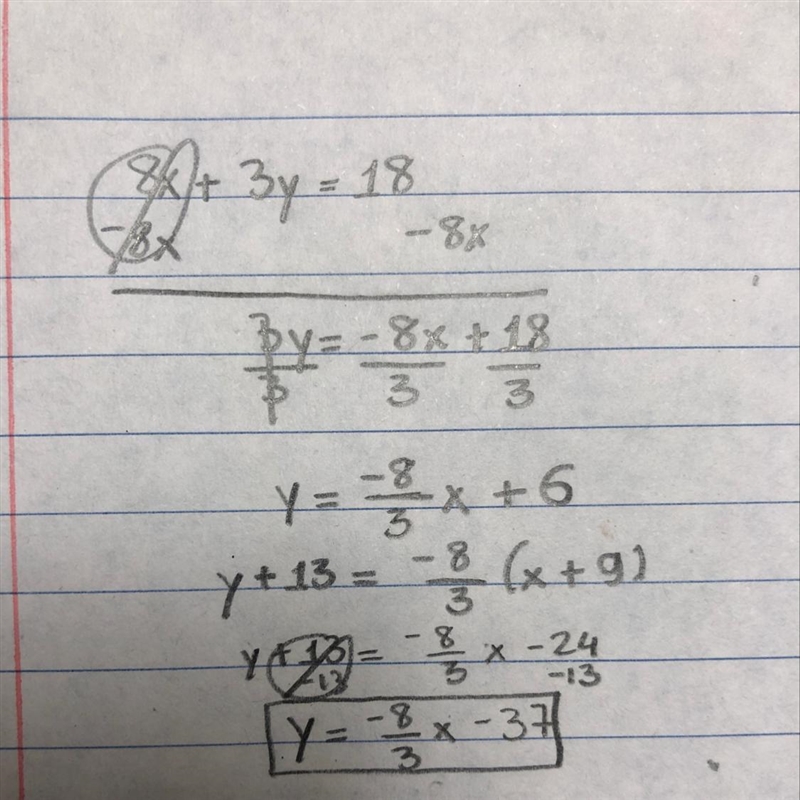 8x + 3y = 18
-8x -8x
3y/3 = -8x/3 + 18/3
y = -8/3 x + 6
y + 13 = -8/3 (x + 9)
y + 13 = -8/3 x - 24
-13 -13
y = -8/3 x - 37